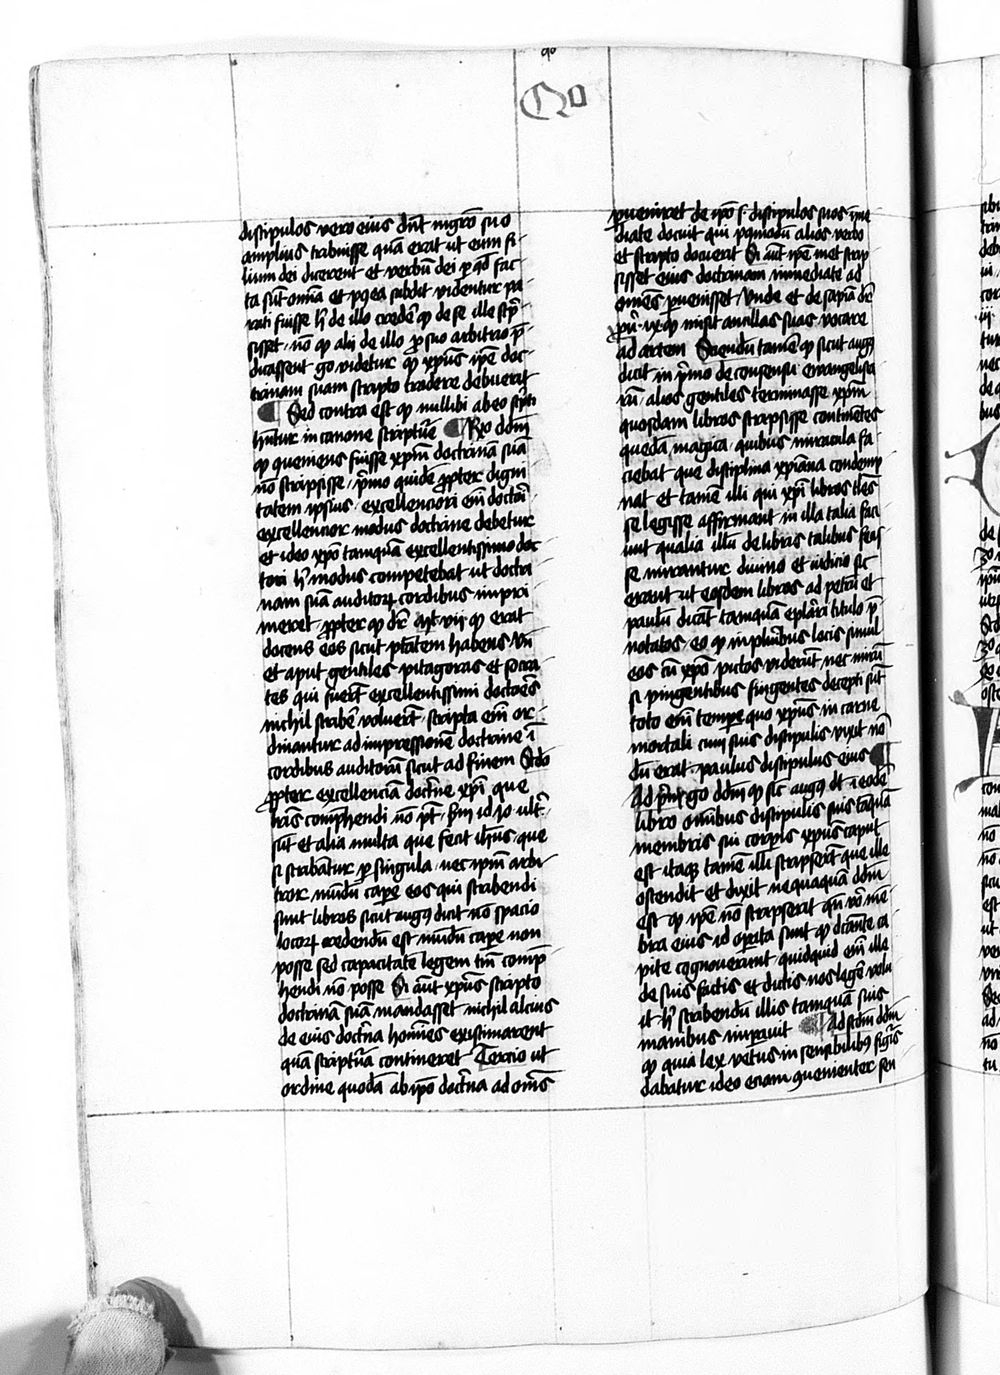 Qo
discipulos vero eius dn̄t mgrō suo
amplius tribuisse quā erat ut eum fi
lium dei dicerent et verbū dei ꝑ qd̄ fac
ta sūt om̄ia et ꝓqꝫea subdit videntur pa
rati fuisse h̄ de illo credē̄ qꝫ de se ille sc̄p
sisset nō qꝫ alij de illo ꝓ suo arbitrio p̄
dicassent gͦo videtur qꝫ xp̄us ip̄e doc
trinam suam scripto tradere debuerit
¶ Sed contra est qꝫ nullibi ab eo sc̄pti
hn̄tur in canone scripture ¶ Rͦo dd̄m
qꝫ queniens fuisse xp̄m doctrinā suā
nō scripsisse pͥmo quidē ꝓpter digni
tatem ipsius excellenciori em̄ doctōri
excellencior modus doctrine debetur
et ideo xp̄o tamquā excellentissimo doc
tori h̄ modus competebat ut doctri
nam suā auditoꝝ cordibus impri
meret ꝓpter qꝫ dr̄ mt̄ vij qꝫ erat
docens eos sicut ptātem habens vn̄
et aput gentiles pitagoras et socra
tes qui fuerūt excellentissimi doctōēs
nichil scriber̄ voluerūt scripta em̄ or
dinantur ad impressionē doctrine ī
cordibus auditorū sicut ad finem Scdo
ꝓpter excellenciā doctrīe xp̄i que
lrīs comꝓhendi nō pt̄ ẜm id io ult̄
sūt et alia multa que fecit ihūs que
si scribātur ꝑ singula nec ip̄m arbi
tror mūdū capē eos qui scribendi
sunt libros sicut augꝰ dicit nō spacio
locoꝝ credendū est mūdū capē non
posse sed capacitate legem tn̄ comp̄
hendi nō posse Si aūt xp̄us scripto
doctrinam suā mandasset nichil alcius
de eius doctrīa homīes existimarent
quā scriptūra contineret Tercio ut
ordine quodā ab ip̄o doctrīa ad om̄s
ꝑueniret de ip̄o ẜ discipulos suos īme
diate docuit qui ꝓqꝫmodū alios verbo
et scripto docuerūt Si aūt ip̄e met scrip
sisset eius doctrinam immediate ad
om̄es ꝑuenisset vnde et de sapīa dr̄
ꝓū ix qꝫ misit ancillas suas vocare
ad artem Sciendū tamē qꝫ sicut augꝰ
dicit in pͥmo de consensu ewangelista
rū alios gentiles terminasse xp̄m
quosdam libros scripsisse continētes
quedā magica quibus miracula fa
ciebat que disciplina xp̄iana condemp
nat et tamē illi qui xp̄i libros tl̄es
se legisse affirmant in illa talia faci
unt qualia illū de libris talibus fecis
se mirantur diuino et iudicio sic
errant ut eosdem libros ad petrū et
paulū dicāt tamquā ep̄lāri titulo p̄
notatos eo qꝫ in pluribus locis simul
eos cū xp̄o pictos viderūt nec mirū
si pingentibus fingentes decepti sūt
toto em̄ tempe quo xp̄us in carne
mortali cum suis discipulis vixit nō
dū erat paulus discipulus eius ¶
Ad pͥmū gͦo dd̄m qꝫ sic augꝰ dt ī eodē
libro om̄ibus discipulis suis taquā
membris sui corpīs xp̄us caput
est itaqꝫ tamē illi scripserūt que ille
ostendit et dixit nequaquā dd̄m
est qꝫ ip̄e nō scripserit qn̄ vͦo mē
bra eius id oꝑata sunt qꝫ dictante ca
pite cognouerunt quidquid em̄ ille
de suis factis et dictis nos legē̄ volu
it h̄ scribendū illis tamquā suis
manibus imꝑauit ¶ Ad scdm dd̄m
qꝫ quia lex vetus in sensibilibꝫ figuris
dabatur ideo eciam ꝯuenienter sen